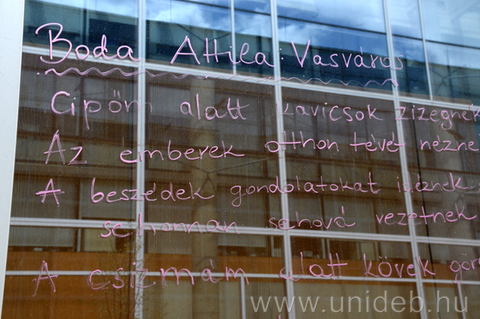 Boda Attila: Vasváros
Cipőm alatt kavicsok zizegnek
Az emberek otthon tévét nézne
A beszédek gondolatokat idéznek
sehonnan sehová vezetnek
A csizmám alatt kövek gör
www.unideb.hu